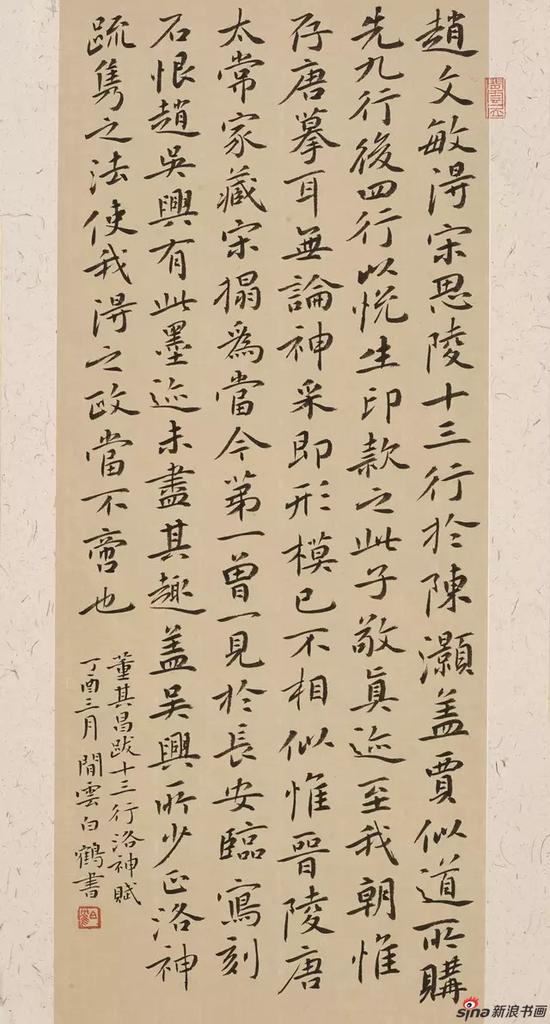 趙文敏得宋思陵十三行於陳灝盖賈似道所購
先九行後四行以悅生印款之此子敬真迹至我朝惟
存唐摹耳無論神采即形模已不相似惟晉陵唐
太常家藏宋搨為當今第一曾一見於長安臨寫刻
石恨趙吳興有此墨迹未盡其趣盖吳興所少正洛神
疏雋之法使我得之政當不啻也
董其昌跋十三行洛神賦
丁酉三月閒雲白鶴書
sina新浪书画